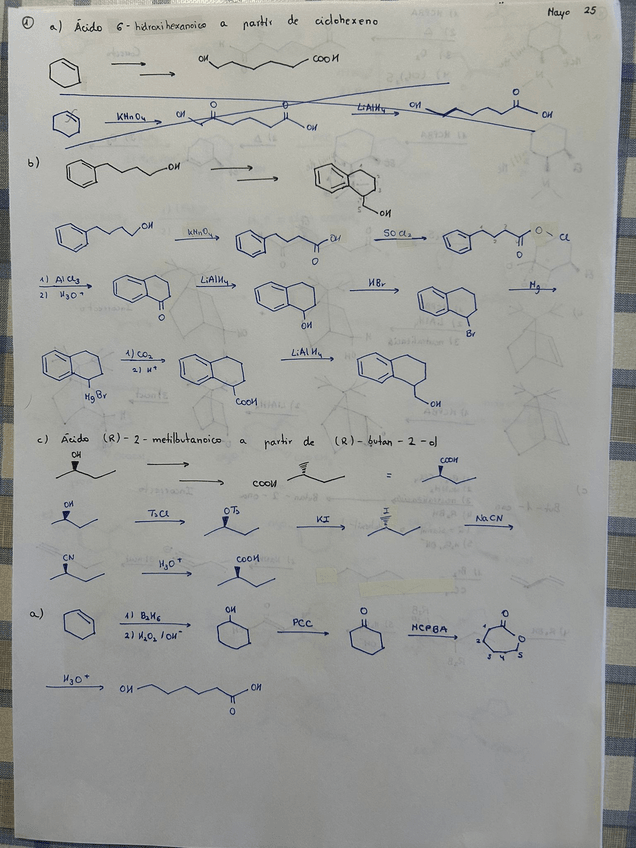 Mayo 25
① a) Ácido 6-hidroxihexanoico a partir de ciclohexeno
OH COOH
KMnO₄ OH O O OH LiAlH₄ OH O OH
b) OH OH
OH KMnO₄ OH O SOCl₂ O Cl O
1) AlCl₃
2) H₃O⁺ O LiAlH₄ OH HBr Br Mg
MgBr 1) CO₂
2) H⁺ COOH LiAlH₄ OH
c) Ácido (R)-2-metilbutanoico a partir de (R)-butan-2-ol
OH COOH = COOH
OH TsCl OTs KI I NaCN
CN H₃O⁺ COOH
a) 1) B₂H₆
2) H₂O₂/OH⁻ OH PCC O MCPBA O O 1 2 3 4 5
H₃O⁺ OH OH O